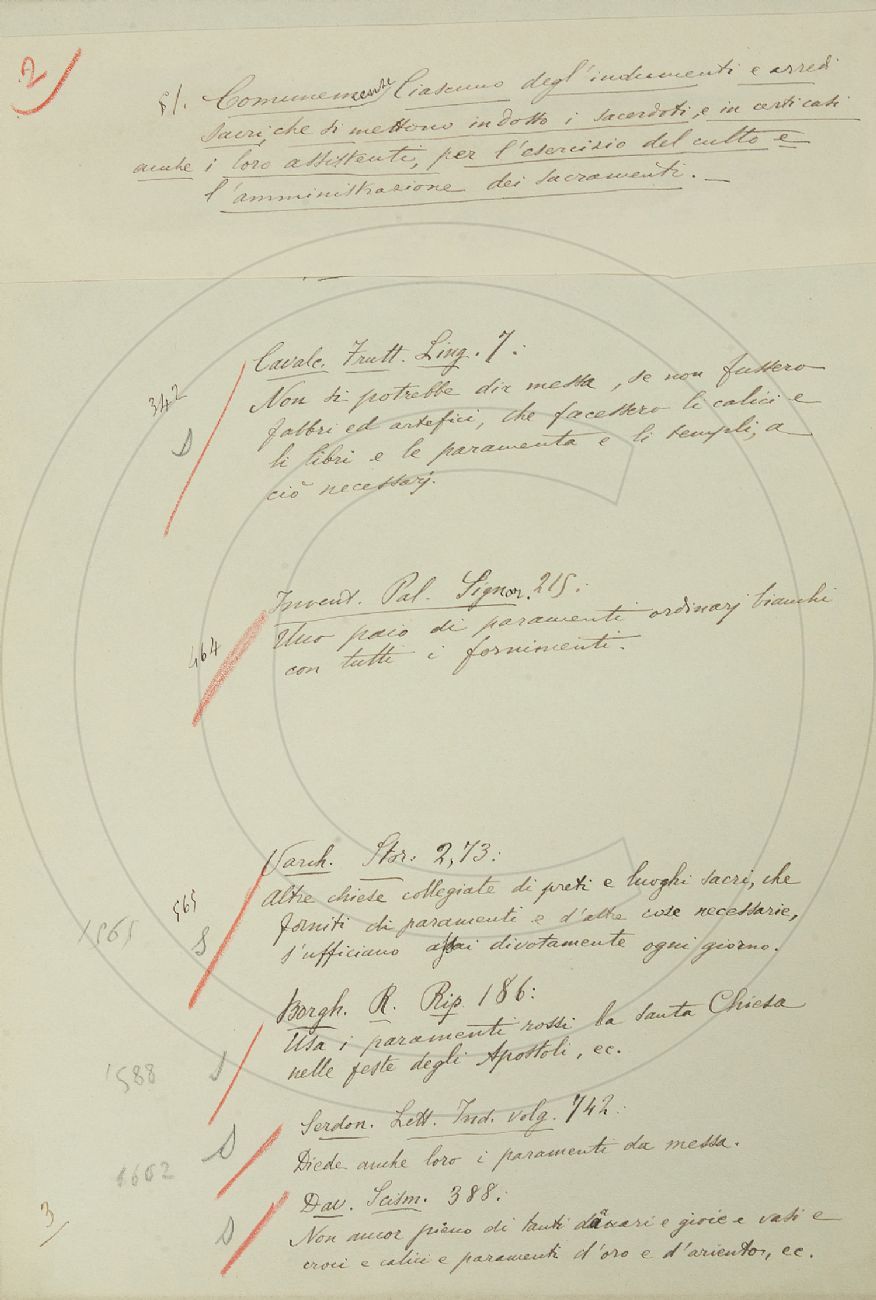 2
§ I. Comunemente Ciascuno degl'indumenti e arredi
sacri, che si mettono indosso i sacerdoti, e in certi casi
anche i loro assistenti, per l'esercizio del culto e
l'amministrazione dei sacramenti. —
Cavalc. Frutt. Ling. 7:
342
Non si potrebbe dir messa, se non fussero
fabbri ed artefici, che facessero li calici e
li libri e le paramenta e li templi, a
ciò necessarj.
Invent. Pal. Signor. 215:
464
Uno paio di paramenti ordinarj bianchi
con tutti i fornimenti.
Varch. Stor. 2,73:
565
Altre chiese collegiate di preti e luoghi sacri, che
1565
forniti di paramenti e d'altre cose necessarie,
s'ufficiano assai divotamente ogni giorno.
Borgh. R. Rip. 186:
Usa i paramenti rossi la santa Chiesa
1588
nelle feste degli Apostoli, ec.
Serdon. Lett. Ind. volg. 742:
Diede anche loro i paramenti da messa.
Dav. Scism. 388:
3
Non ancor pieno di tanti danari e gioie e vasi e
croci e calici e paramenti d'oro e d'ariento, ec.